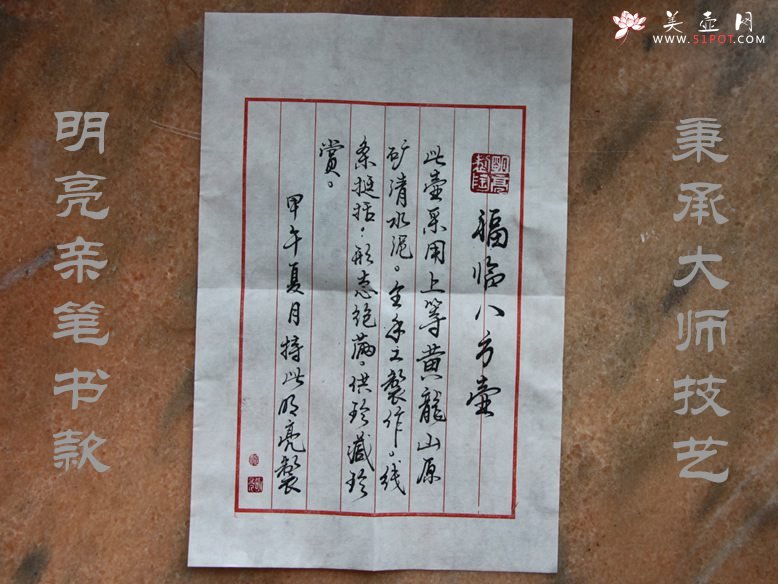 美壶网
WWW.51POT.COM
秉承大师技艺
明亮製陶
福临八方壶
此壶采用上等黄龍山原
矿清水泥。全手工製作。线
条挺括！形态饱满。供珍藏珍
赏。
甲午夏月持此明亮製
明亮亲笔书款